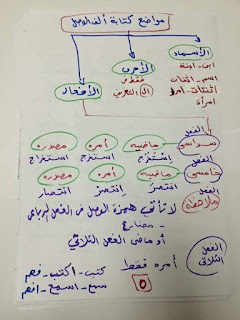 مواضع كتابة ألف الوصل
الأسماء
الأحرف
الأفعال
ابن - ابنة
اسم - اثنان
اثنتان - امرؤ
امرأة
فقط في
ال التعريف
الفعل سداسي
ماضيه
أمره
مصدره
استخرج
استخرج
استخراج
الفعل خماسي
ماضيه
أمره
مصدره
انتصر
انتصر
انتصار
ملاحظة
لا تأتي همزة الوصل من الفعل الرباعي
- مضارع
أو ماضي الفعل الثلاثي
الفعل الثلاثي
أمره فقط
كتب - اكتب - فهم
سمع - اسمع - افهم